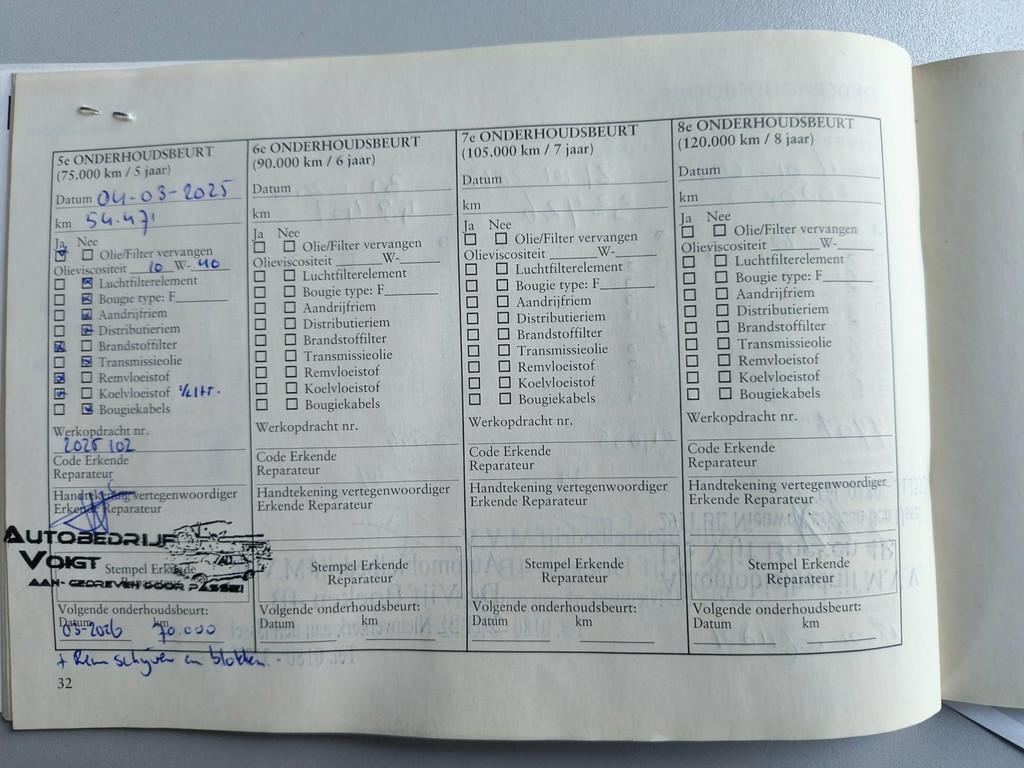 5e ONDERHOUDSBEURT
(75.000 km / 5 jaar)
Datum 04-03-2025
km 54.471
Ja Nee
Olie/Filter vervangen
Olieviscositeit 10 W- 40
Luchtfilterelement
Bougie type: F
Aandrijfriem
Distributieriem
Brandstoffilter
Transmissieolie
Remvloeistof
Koelvloeistof ½ ltr.
Bougiekabels
Werkopdracht nr.
2025 102
Code Erkende
Reparateur
Handtekening vertegenwoordiger
Erkende Reparateur
AUTOBEDRIJF
VOIGT
Stempel Erkende
AAN- GEDREVEN DOOR PASSIE!
Volgende onderhoudsbeurt:
Datum km
03-2026 70.000
+ Remschijven en blokken
6e ONDERHOUDSBEURT
(90.000 km / 6 jaar)
Datum
km
Ja Nee
Olie/Filter vervangen
Olieviscositeit W-
Luchtfilterelement
Bougie type: F
Aandrijfriem
Distributieriem
Brandstoffilter
Transmissieolie
Remvloeistof
Koelvloeistof
Bougiekabels
Werkopdracht nr.
Code Erkende
Reparateur
Handtekening vertegenwoordiger
Erkende Reparateur
Stempel Erkende
Reparateur
Volgende onderhoudsbeurt:
Datum km
7e ONDERHOUDSBEURT
(105.000 km / 7 jaar)
Datum
km
Ja Nee
Olie/Filter vervangen
Olieviscositeit W-
Luchtfilterelement
Bougie type: F
Aandrijfriem
Distributieriem
Brandstoffilter
Transmissieolie
Remvloeistof
Koelvloeistof
Bougiekabels
Werkopdracht nr.
Code Erkende
Reparateur
Handtekening vertegenwoordiger
Erkende Reparateur
Stempel Erkende
Reparateur
Volgende onderhoudsbeurt:
Datum km
8e ONDERHOUDSBEURT
(120.000 km / 8 jaar)
Datum
km
Ja Nee
Olie/Filter vervangen
Olieviscositeit W-
Luchtfilterelement
Bougie type: F
Aandrijfriem
Distributieriem
Brandstoffilter
Transmissieolie
Remvloeistof
Koelvloeistof
Bougiekabels
Werkopdracht nr.
Code Erkende
Reparateur
Handtekening vertegenwoordiger
Erkende Reparateur
Stempel Erkende
Reparateur
Volgende onderhoudsbeurt:
Datum km
32